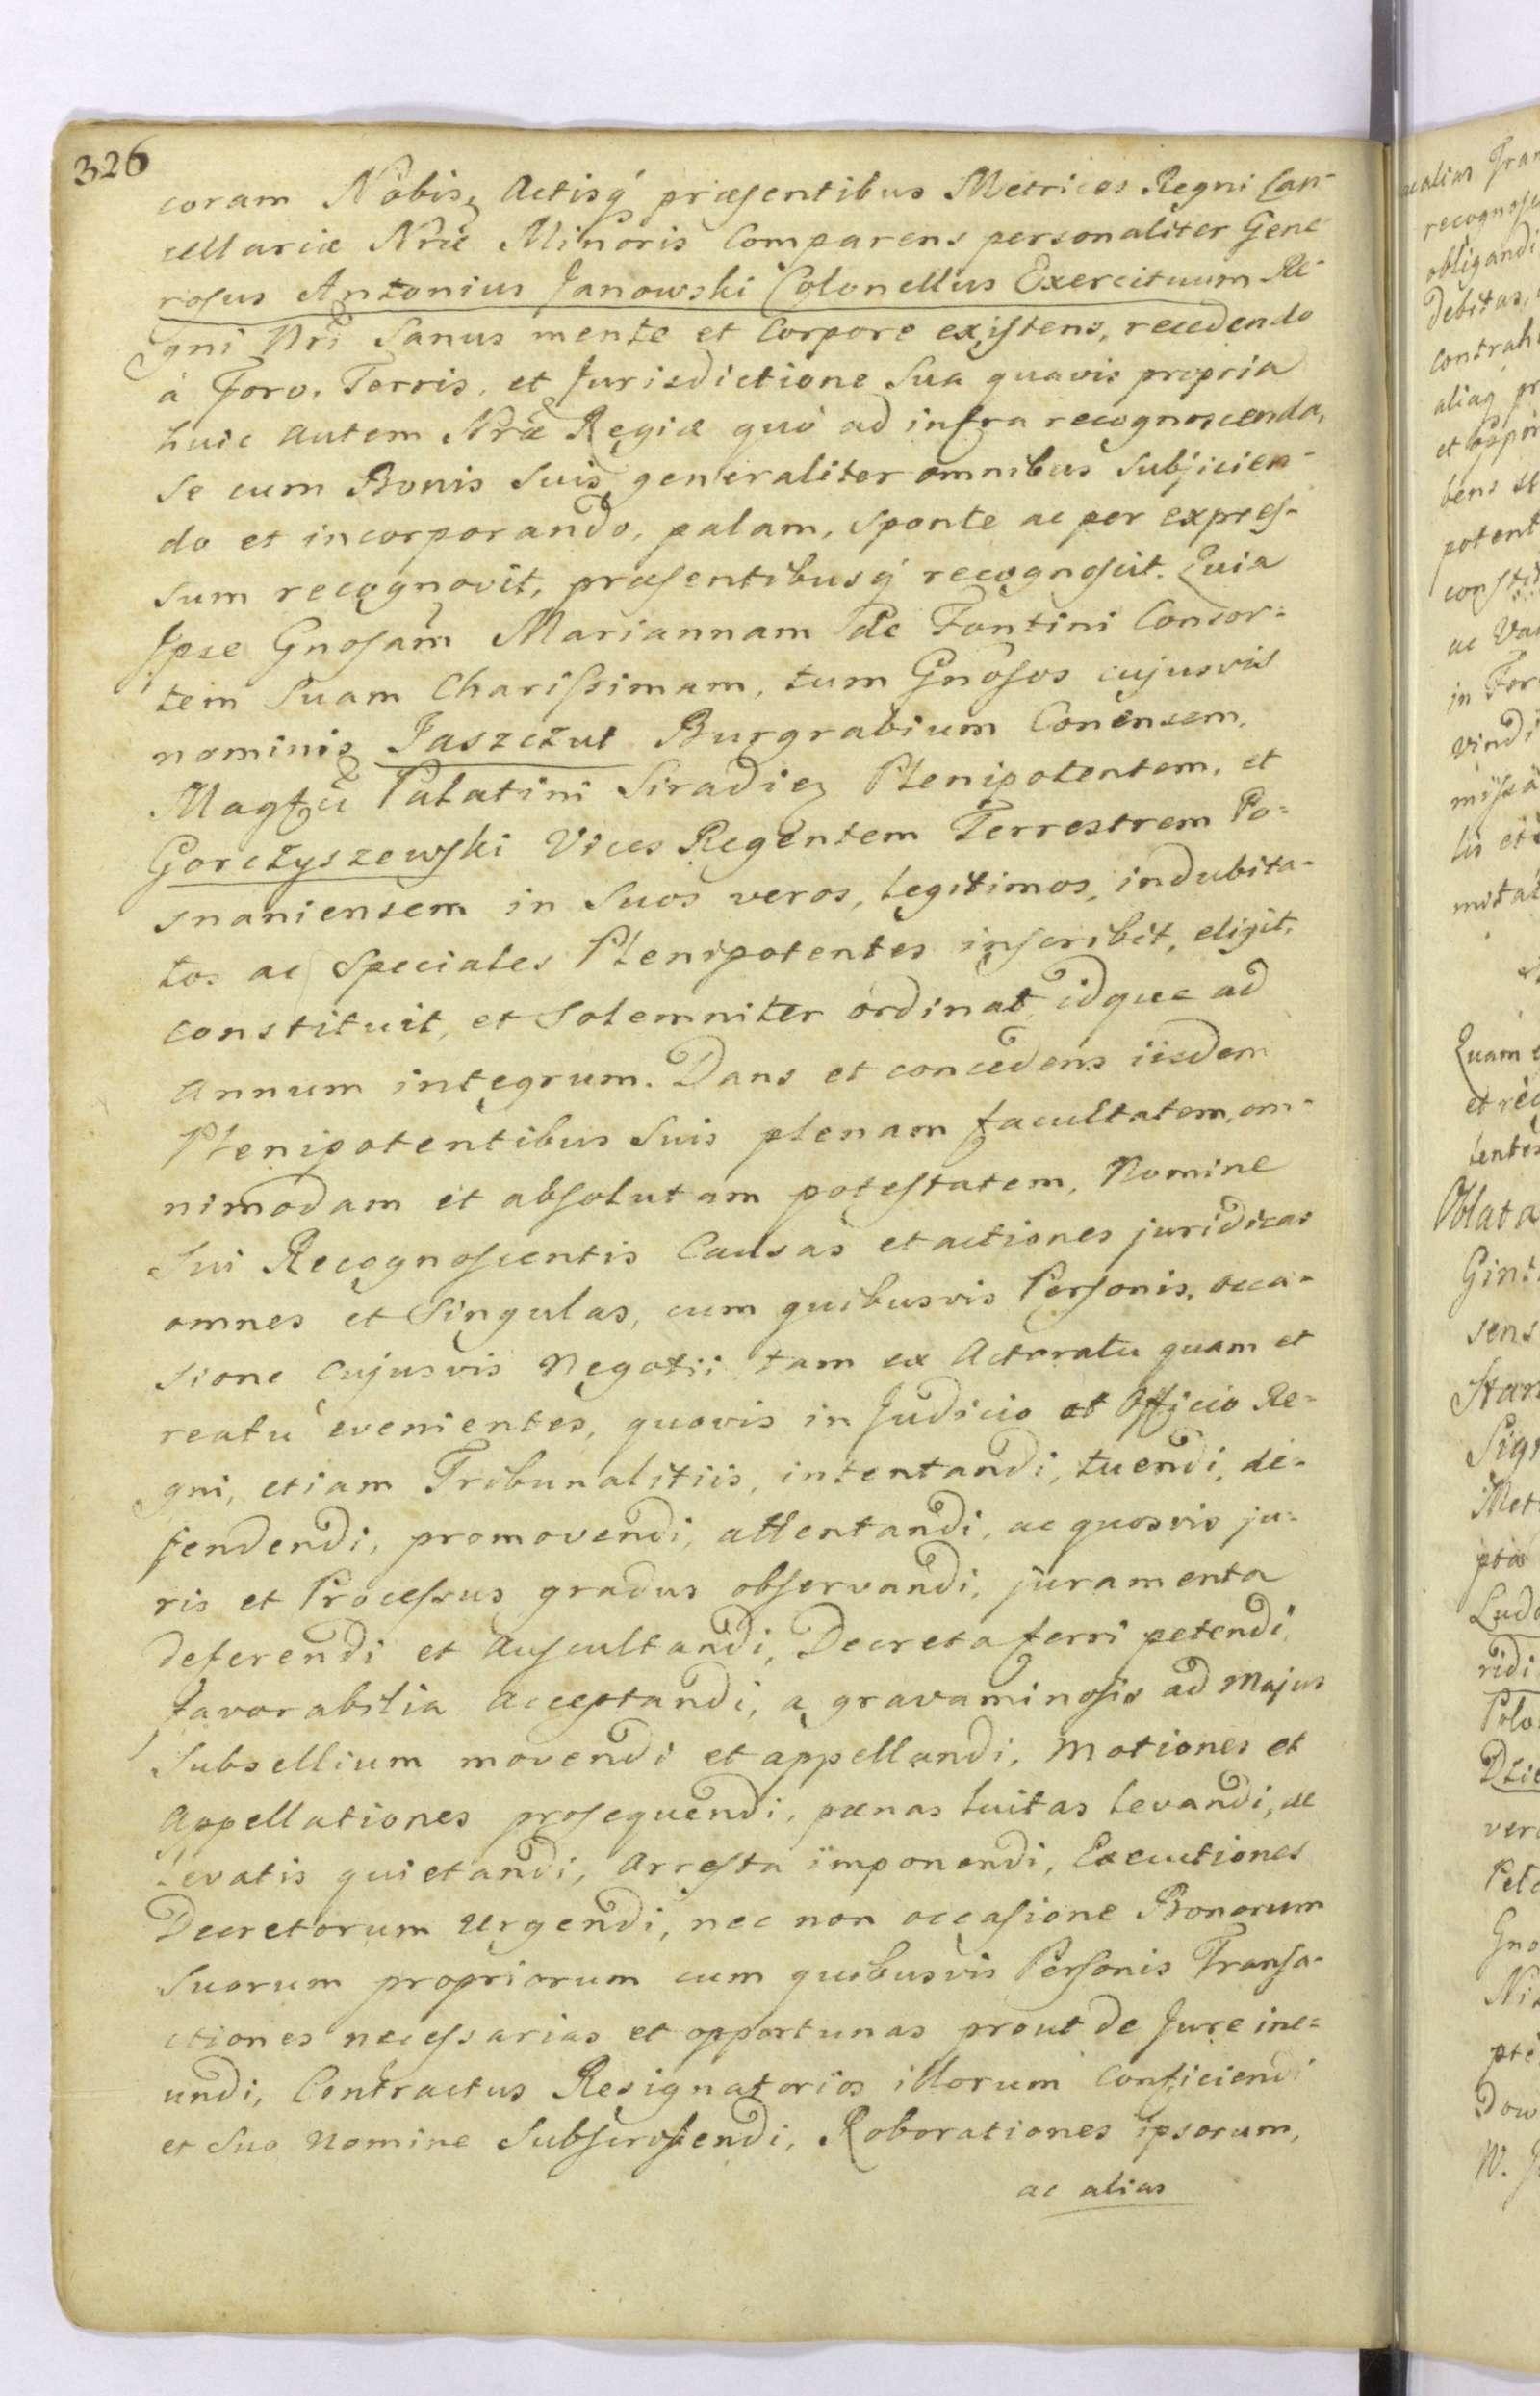 326
coram Nobis, Actisq́ præsentibus Metrices Regni Can-
cellariæ Nræ Minoris Comparens personaliter Gene-
rosus Antonius Janowski Colonellus Exercituum Re-
gni Nri Sanus mente et Corpore existens, recedendo
à Foro, Terris, et Jurisdictione Sua quavis propria
huic autem Nræ Regiæ quò ad infra recognoscenda,
Se cum Bonis Suis generaliter omnibus Subjicien-
do et incorporando, palam, Sponte ac per expres-
sum recognovit, præsentibusq́ recognoscit. Quia
Ipse Gnosam Mariannam de Fontini Consor=
tem Suam Charissimam, tum Gnosos cujusvis
nominis Jaszczut Burgrabium Conensem,
Magfci Palatini Siradię Plenipotentem, et
Gorczyszewski Vices Regentem Terrestrem Po=
snaniensem in Suos veros, legitimos, indubita-
tos ac Speciales Plenipotentes inscribit, eligit,
constituit, et Solemniter ordinat, idque ad
annum integrum. Dans et concedens iisdem
Plenipotentibus Suis plenam facultatem, om-
nimodam et absolutam potestatem, Nomine
Sui Recognoscentis Causas et actiones juridicas
omnes et Singulas, cum quibusvis Personis, occa-
sione cujusvis Negotii tam ex Actoratu quam et
reatu evenientes, quovis in Judicio et Officio Re=
gni, etiam Tribunalitiis, intentandi, tuendi, de-
fendendi, promovendi, attentandi, ac quosvis ju=
ris et Processus gradus observandi, juramenta
deferendi et Auscultandi, Decreta ferri petendi,
favorabilia acceptandi, a gravaminosis ad Majus
Subsellium movendi et appellandi, Motiones et
Appellationes prosequendi, pœnas luitas levandi, de
levatis quietandi, Arresta imponendi, Executiones
Decretorum Urgendi, nec non occasione Bonorum
Suorum propriorum cum quibusvis Personis Transa-
ctiones necessarias et opportunas prout de Jure ine=
undi, Contractus Resignatorios illorum Conficiendi
et Suo Nomine Subscribendi, Roborationes ipsorum,
ac alias